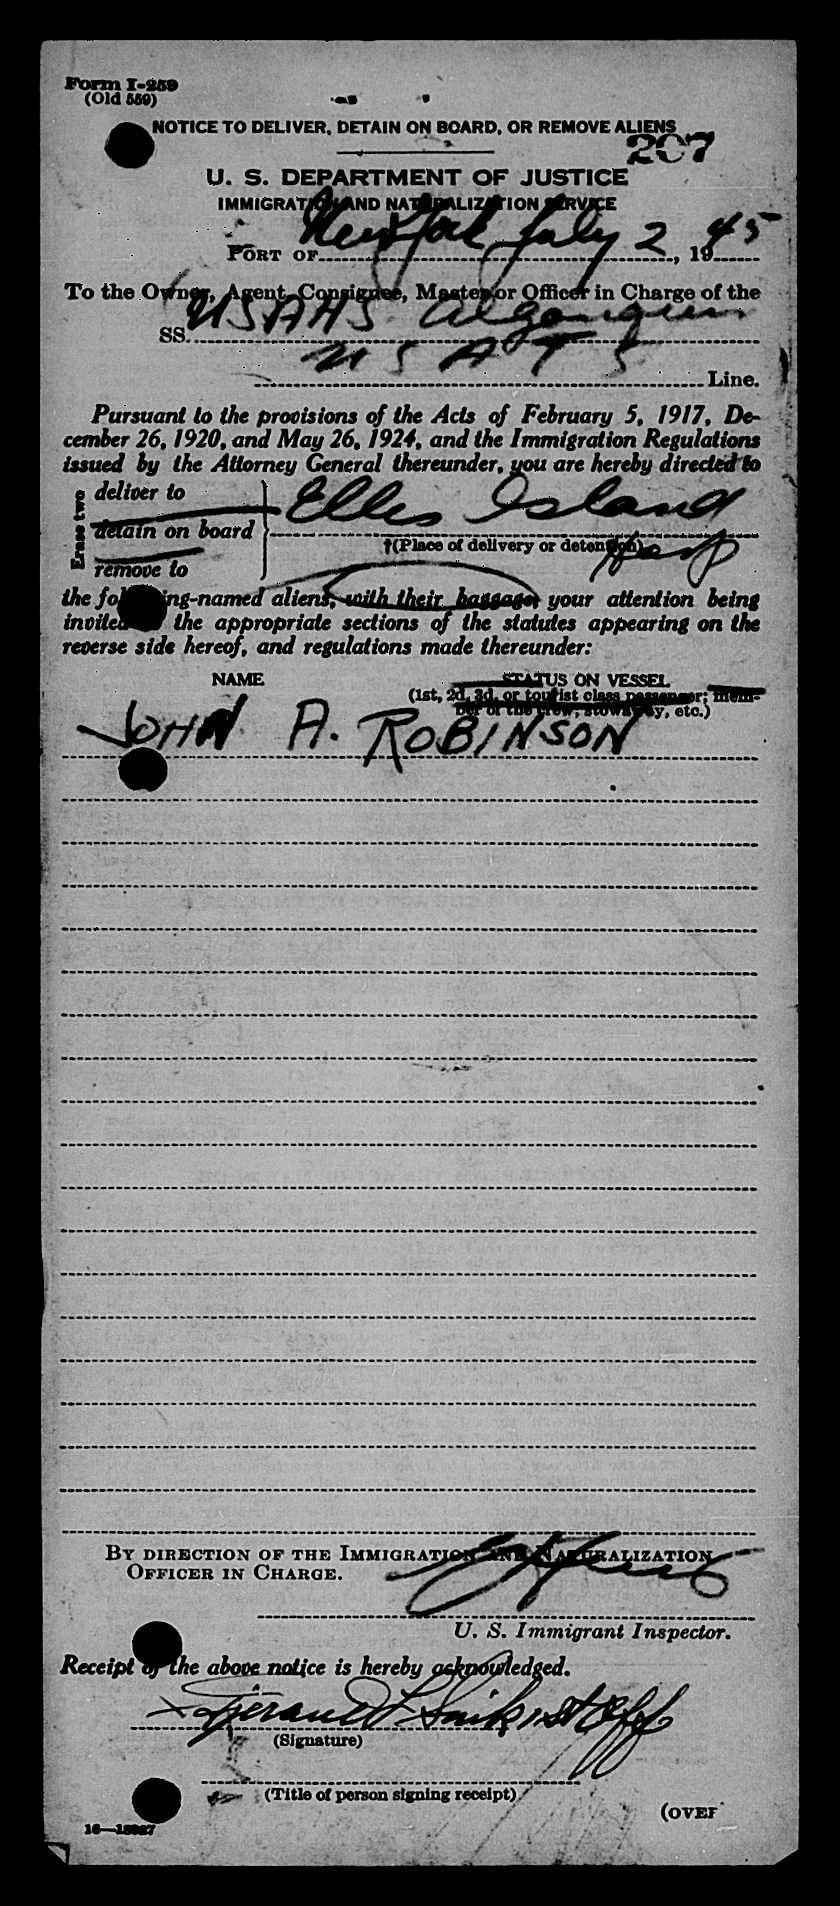 Form I-259
(Old 559)
NOTICE TO DELIVER, DETAIN ON BOARD, OR REMOVE ALIENS
207
U. S. DEPARTMENT OF JUSTICE
IMMIGRATION AND NATURALIZATION SERVICE
PORT OF New York July 2, 1945
To the Owner, Agent, Consignee, Master or Officer in Charge of the
SS. USAHS Algonquin
U S A T S Line.
Pursuant to the provisions of the Acts of February 5, 1917, De-
cember 26, 1920, and May 26, 1924, and the Immigration Regulations
issued by the Attorney General thereunder, you are hereby directed to
Erase two
deliver to
detain on board
remove to
Ellis Island
†(Place of delivery or detention) Hosp
the following-named aliens, with their baggage, your attention being
invited to the appropriate sections of the statutes appearing on the
reverse side hereof, and regulations made thereunder:
NAME STATUS ON VESSEL
(1st, 2d, 3d, or tourist class passenger; mem-
ber of the crew, stowaway, etc.)
JOHN A. ROBINSON
BY DIRECTION OF THE IMMIGRATION AND NATURALIZATION
OFFICER IN CHARGE.
U. S. Immigrant Inspector.
Receipt of the above notice is hereby acknowledged.
1st Off
(Signature)
(Title of person signing receipt)
(OVER